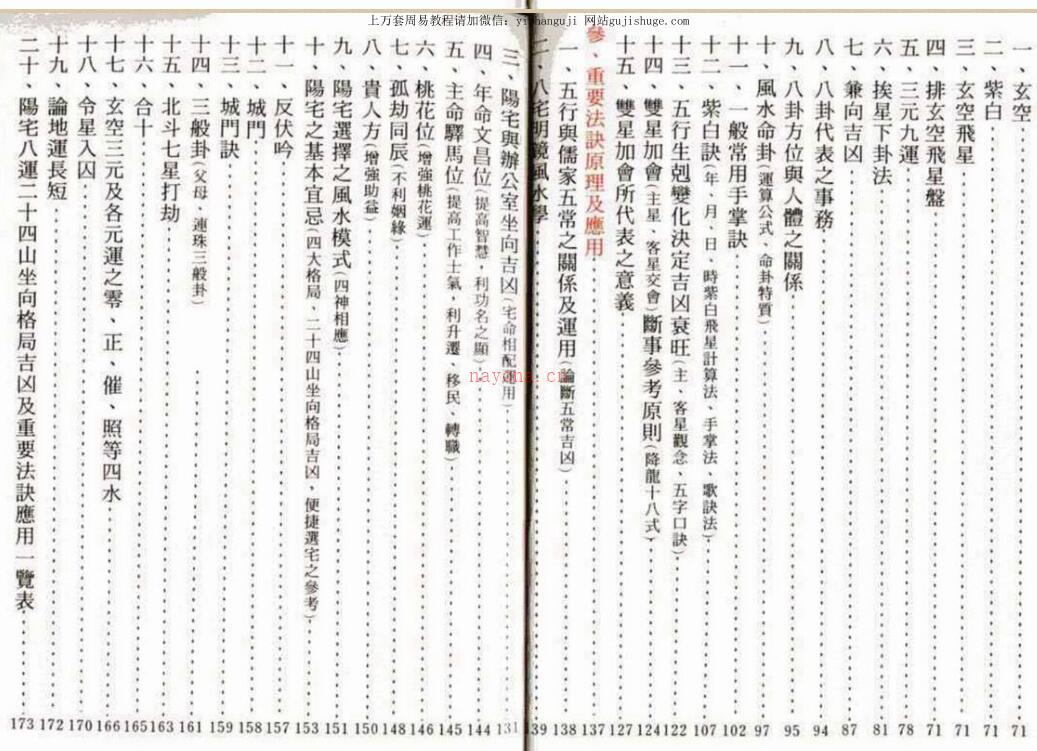 上万套周易教程请加微信：yishanguji 网站gujishuge.com
一、玄空 71
二、紫白 71
三、玄空飛星 71
四、排玄空飛星盤 71
五、三元九運 78
六、挨星下卦法 81
七、兼向吉凶 87
八、八卦代表之事務 94
九、八卦方位與人體之關係 95
十、風水命卦(運算公式、命卦特質) 97
十一、一般常用手掌訣 102
十二、紫白訣(年、月、日、時紫白飛星計算法、手掌法、歌訣法) 107
十三、五行生剋變化決定吉凶衰旺(主、客星觀念、五字口訣) 122
十四、雙星加會(主星、客星交會)斷事參考原則(降龍十八式) 124
十五、雙星加會所代表之意義 127
參、重要法訣原理及應用
一、五行與儒家五常之關係及運用(論斷五常吉凶) 138
二、八宅明鏡風水學 139
三、陽宅與辦公室坐向吉凶(宅命相配運用) 131
四、年命文昌位(提高智慧，利功名之顯) 144
五、主命驛馬位(提高工作士氣，利升遷、移民、轉職) 145
六、桃花位(增強桃花運) 146
七、孤劫同辰(不利姻緣) 148
八、貴人方(增強助益) 150
九、陽宅選擇之風水模式(四神相應) 151
十、陽宅之基本宜忌(四大格局、二十四山坐向格局吉凶，便捷選宅之參考) 153
十一、反伏吟 157
十二、城門 158
十三、城門訣 159
十四、三般卦(父母、連珠三般卦) 161
十五、北斗七星打劫 163
十六、合十 165
十七、玄空三元及各元運之零、正、催、照等四水 166
十八、令星入囚 170
十九、論地運長短 172
二十、陽宅八運二十四山坐向格局吉凶及重要法訣應用一覽表 173